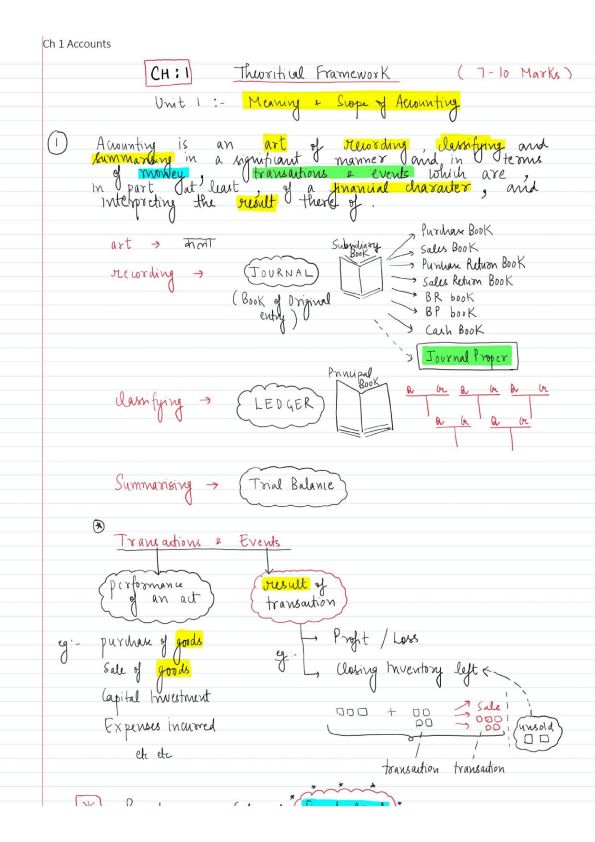 Ch 1 Accounts
CH : 1 Theoritical Framework ( 7-10 Marks )
Unit 1 :- Meaning & Scope of Accounting
① Accounting is an art of recording , classifying and
summarising in a significant manner and, in terms
of money , transactions & events which are ,
in part at least , of a financial character , and
interpreting the result there of .
art → कला
recording → JOURNAL
(Book of Original
entry)
Subsidiary
Book
Purchase Book
Sales Book
Purchase Return Book
Sales Return Book
BR book
BP book
Cash Book
Journal Proper
classifying → LEDGER
Principal
Book
Dr Cr Dr Cr Dr Cr
Dr Cr Dr Cr
Summarising → Trial Balance
* Transactions & Events
performance
of an act
result of
transaction
eg :- purchase of goods
Sale of goods
Capital Investment
Expenses incurred
etc etc
eg :- → Profit / Loss
→ Closing Inventory left
+ Sale
unsold
transaction transaction